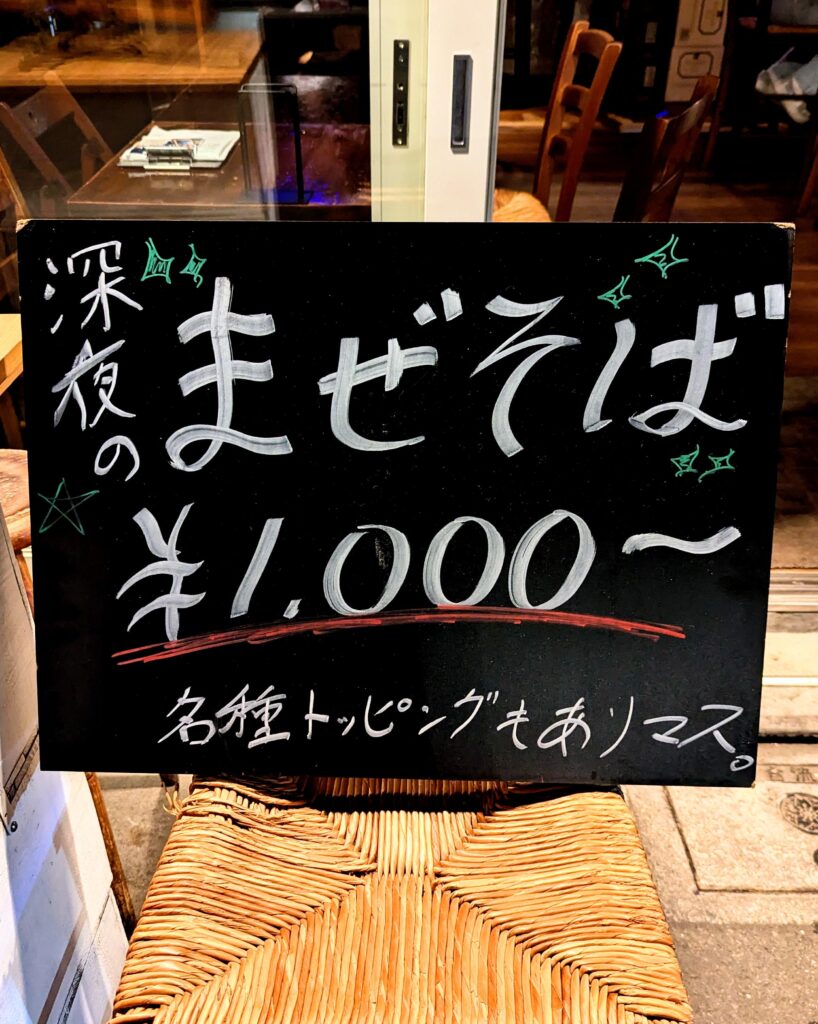 深夜の
まぜそば
¥1,000〜
名種トッピングもありマス。